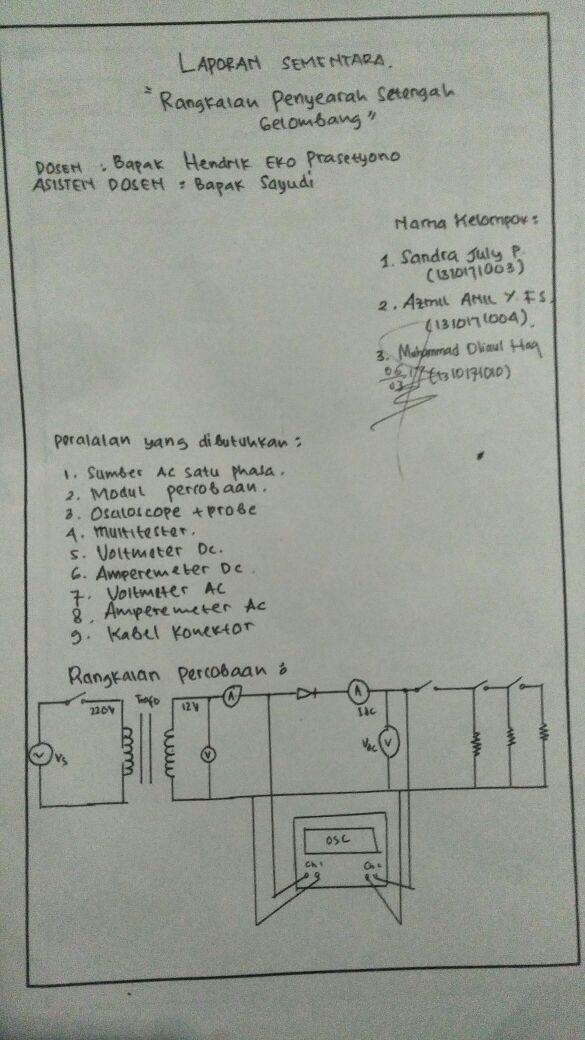 LAPORAN SEMENTARA.
"Rangkaian Penyearah Setengah
Gelombang"
DOSEN : Bapak Hendrik Eko Prasetyono
ASISTEN DOSEN : Bapak Sayudi
Nama Kelompok :
1. Sandra July P.
(1310171003)
2. Azmil AMIL Y. F S.
(1310171004).
3. Muhammad Dliaul Haq
(1310171010)
peralatan yang dibutuhkan :
1. Sumber AC satu phasa.
2. Modul percobaan.
3. Osciloscope + probe
4. Multitester.
5. Voltmeter Dc.
6. Amperemeter Dc.
7. Voltmeter AC
8. Amperemeter AC
9. Kabel Konektor
Rangkaian Percobaan :
220V Trafo 12V A A
Idc
Vs V Vdc V
OSC
Ch1 Ch2